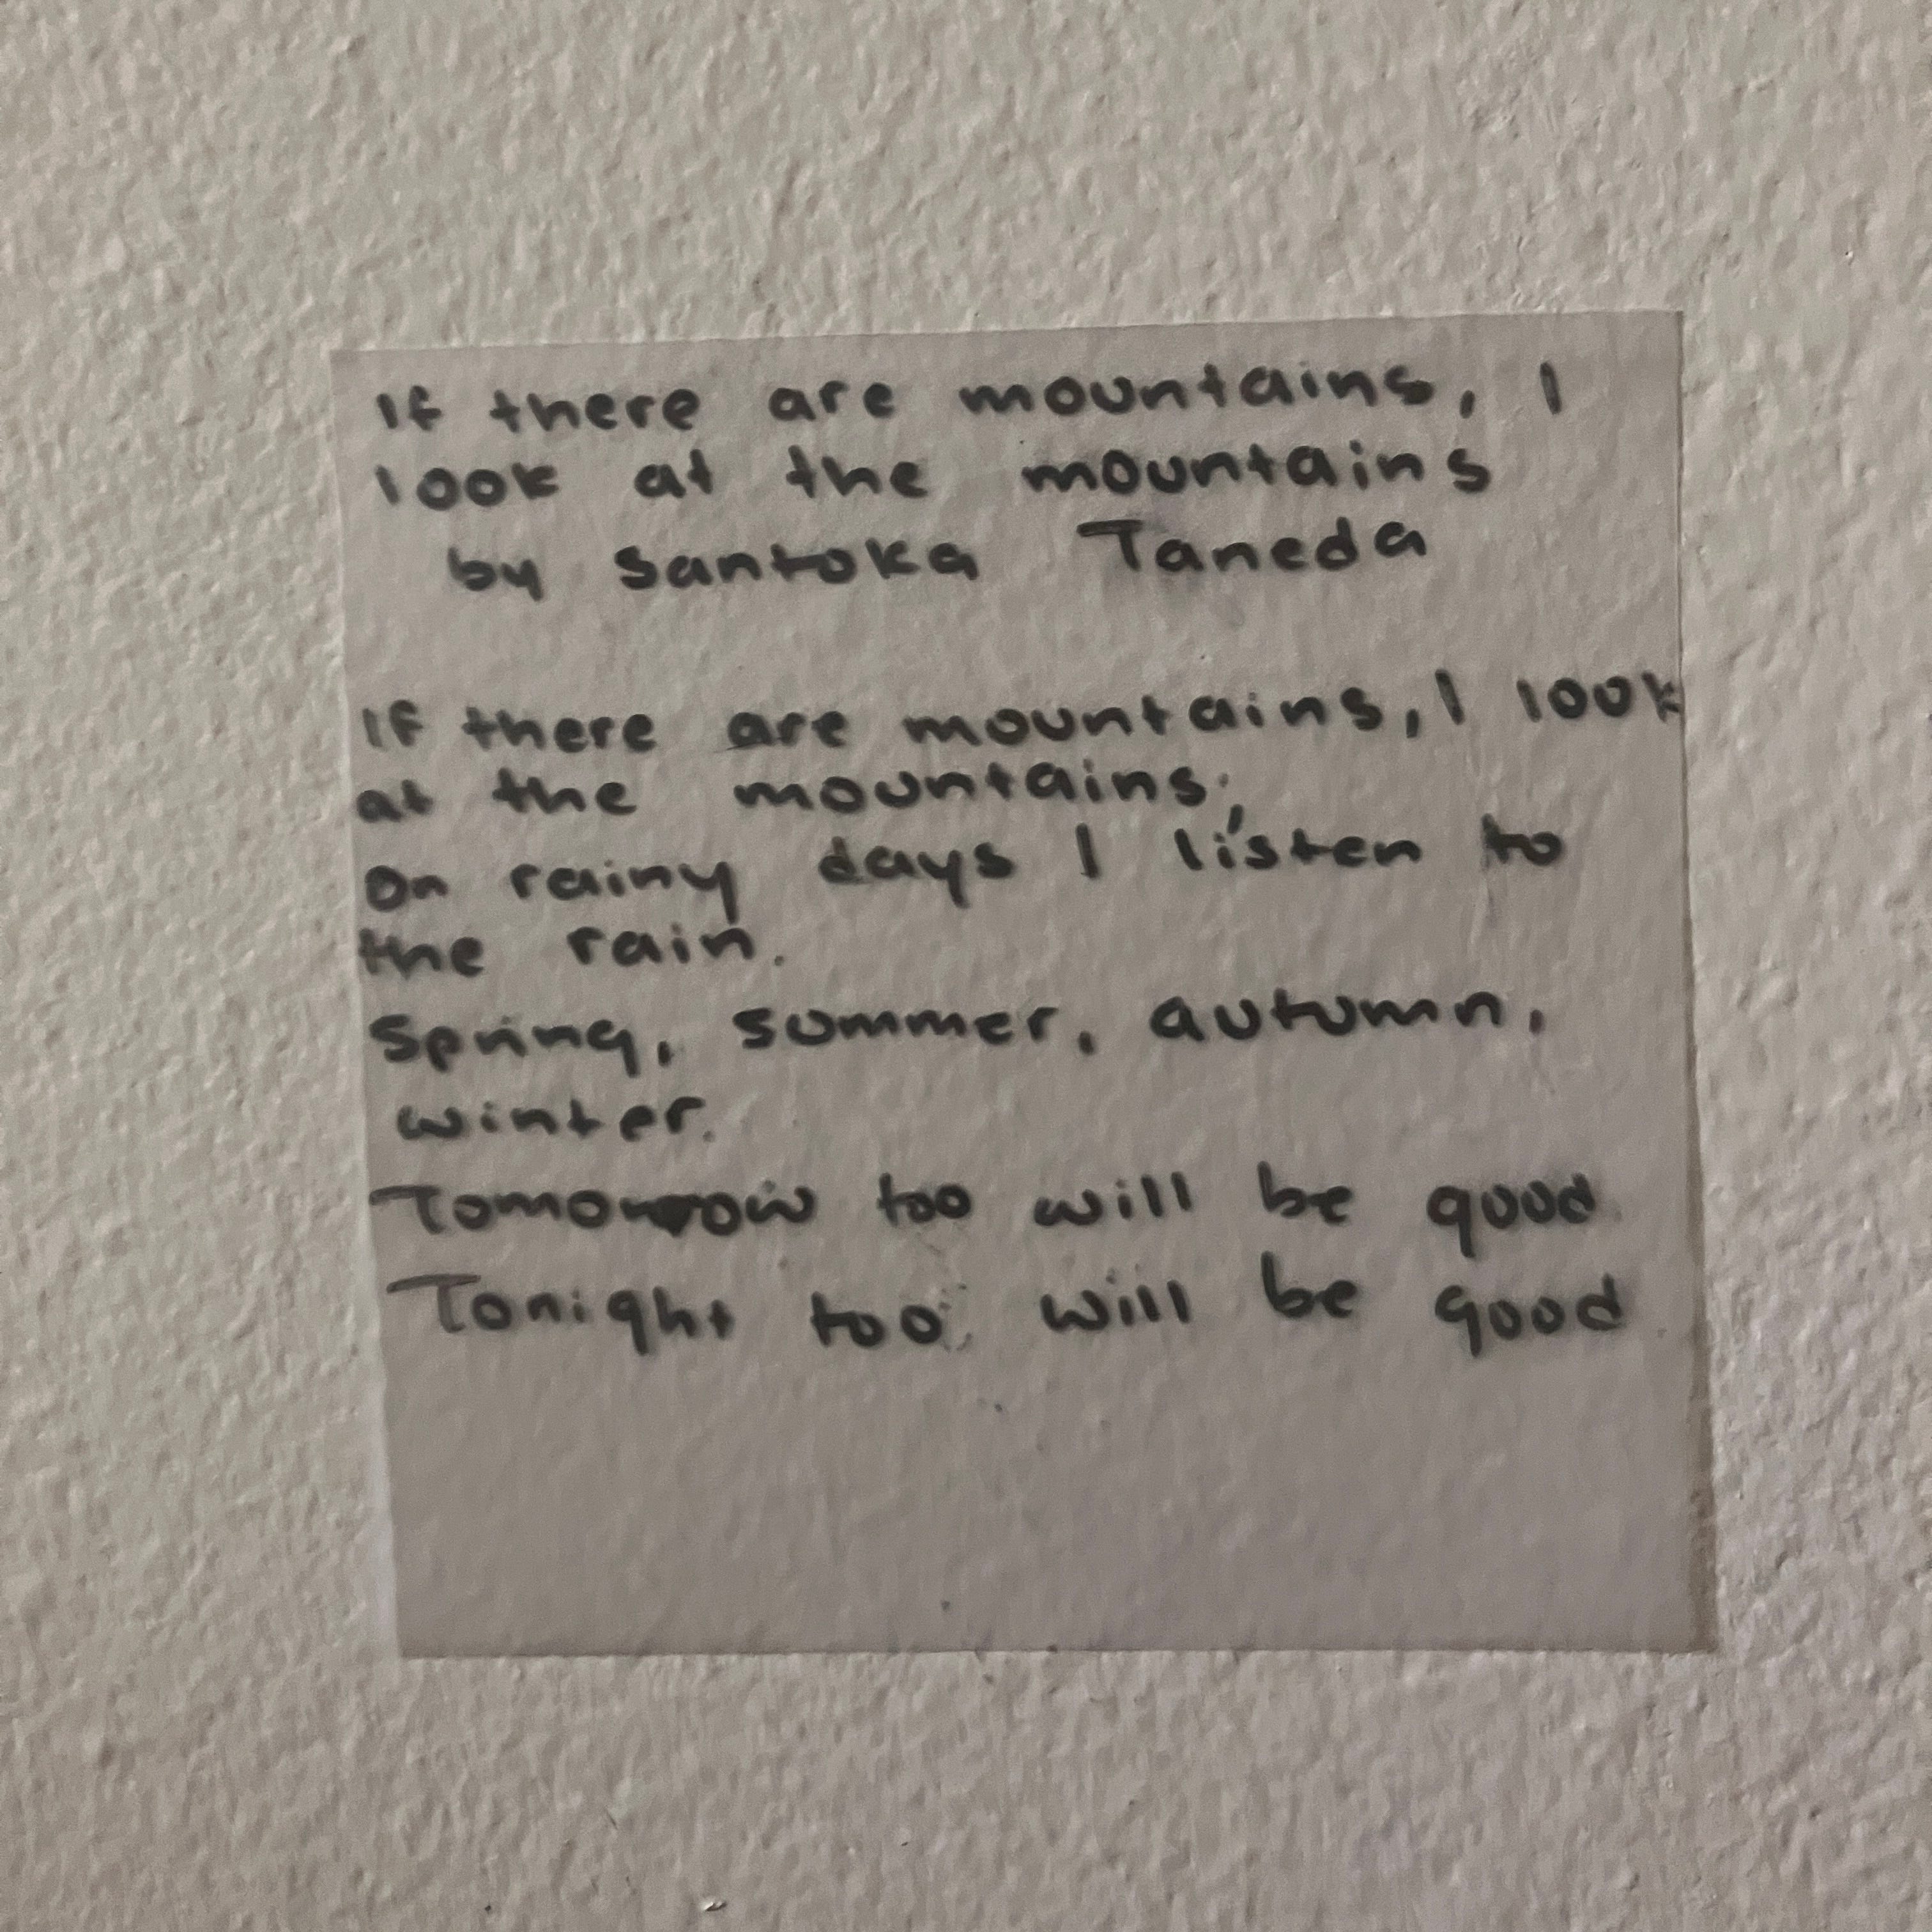 If there are mountains, I
look at the mountains
by Santoka Taneda
If there are mountains, I look
at the mountains;
On rainy days I listen to
the rain.
Spring, summer, autumn,
winter.
Tomorrow too will be good
Tonight too will be good